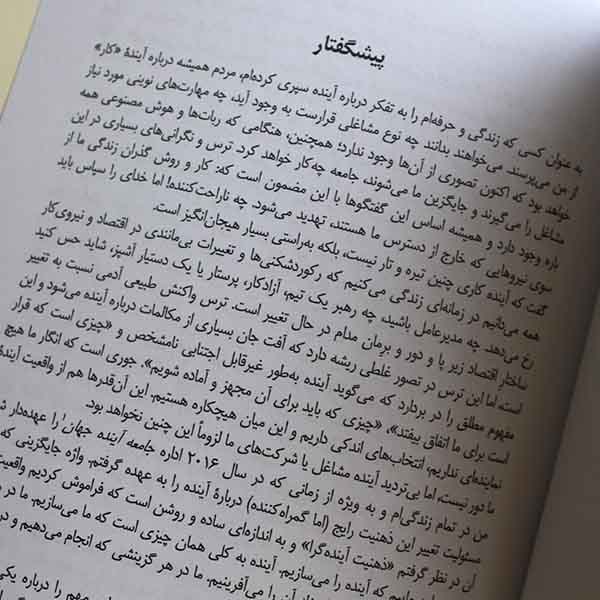 پیشگفتار
به عنوان کسی که زندگی و حرفه‌ام را به تفکر درباره آینده سپری کرده‌ام، مردم همیشه درباره آیندهٔ «کار»
از من می‌پرسند. می‌خواهند بدانند چه نوع مشاغلی قرارست به وجود آید، چه مهارت‌های نوینی مورد نیاز
خواهد بود که اکنون تصوری از آن‌ها وجود ندارد؛ همچنین، هنگامی که ربات‌ها و هوش مصنوعی همه
مشاغل را می‌گیرند و جایگزین ما می‌شوند، جامعه چه‌کار خواهد کرد. ترس و نگرانی‌های بسیاری در این
باره وجود دارد و همیشه اساس این گفتگوها با این مضمون است که: کار و روش گذران زندگی ما از
سوی نیروهایی که خارج از دسترس ما هستند، تهدید می‌شود. چه ناراحت‌کننده! اما خدای را سپاس باید
گفت که آینده کاری چنین تیره و تار نیست، بلکه به‌راستی بسیار هیجان‌انگیز است.
همه می‌دانیم در زمانه‌ای زندگی می‌کنیم که رکوردشکنی‌ها و تغییرات بی‌مانندی در اقتصاد و نیروی‌کار
رخ می‌دهد. چه مدیرعامل باشید، چه رهبر یک تیم، آزادکار، پرستار یا یک دستیار آشپز، شاید حس کنید
ساختار اقتصاد زیر پا و دور و برمان مدام در حال تغییر است. ترس واکنش طبیعی آدمی نسبت به تغییر
است، اما این ترس در تصور غلطی ریشه دارد که آفت جان بسیاری از مکالمات درباره آینده می‌شود و این
مفهوم مطلق را در بردارد که می‌گوید آینده به‌طور غیرقابل اجتنابی نامشخص و «چیزی که قرار
است برای ما اتفاق بیفتد»، «چیزی که باید برای آن مجهز و آماده شویم». جوری است که انگار ما هیچ
نماینده‌ای نداریم، انتخاب‌های اندکی داریم و این میان هیچکاره هستیم. این آن‌قدرها هم از واقعیت آیندهٔ
ما دور نیست، اما بی‌تردید آینده مشاغل یا شرکت‌های ما لزوماً این چنین نخواهد بود.
من در تمام زندگی‌ام و به ویژه از زمانی که در سال ۲۰۱۶ اداره جامعه آینده جهان۱ را عهده‌دار
مسئولیت تغییر این ذهنیت رایج (اما گمراه‌کننده) دربارهٔ آینده را به عهده گرفتم. واژه جایگزینی که
آن در نظر گرفتم «ذهنیت آینده‌گرا» و به اندازه‌ای ساده و روشن است که فراموش کردیم واقعیت
آینده را می‌سازیم. آینده به کلی همان چیزی است که ما می‌سازیم. ما در
آن را می‌آفرینیم. ما در هر گزینشی که انجام می‌دهیم و در
مهم را درباره